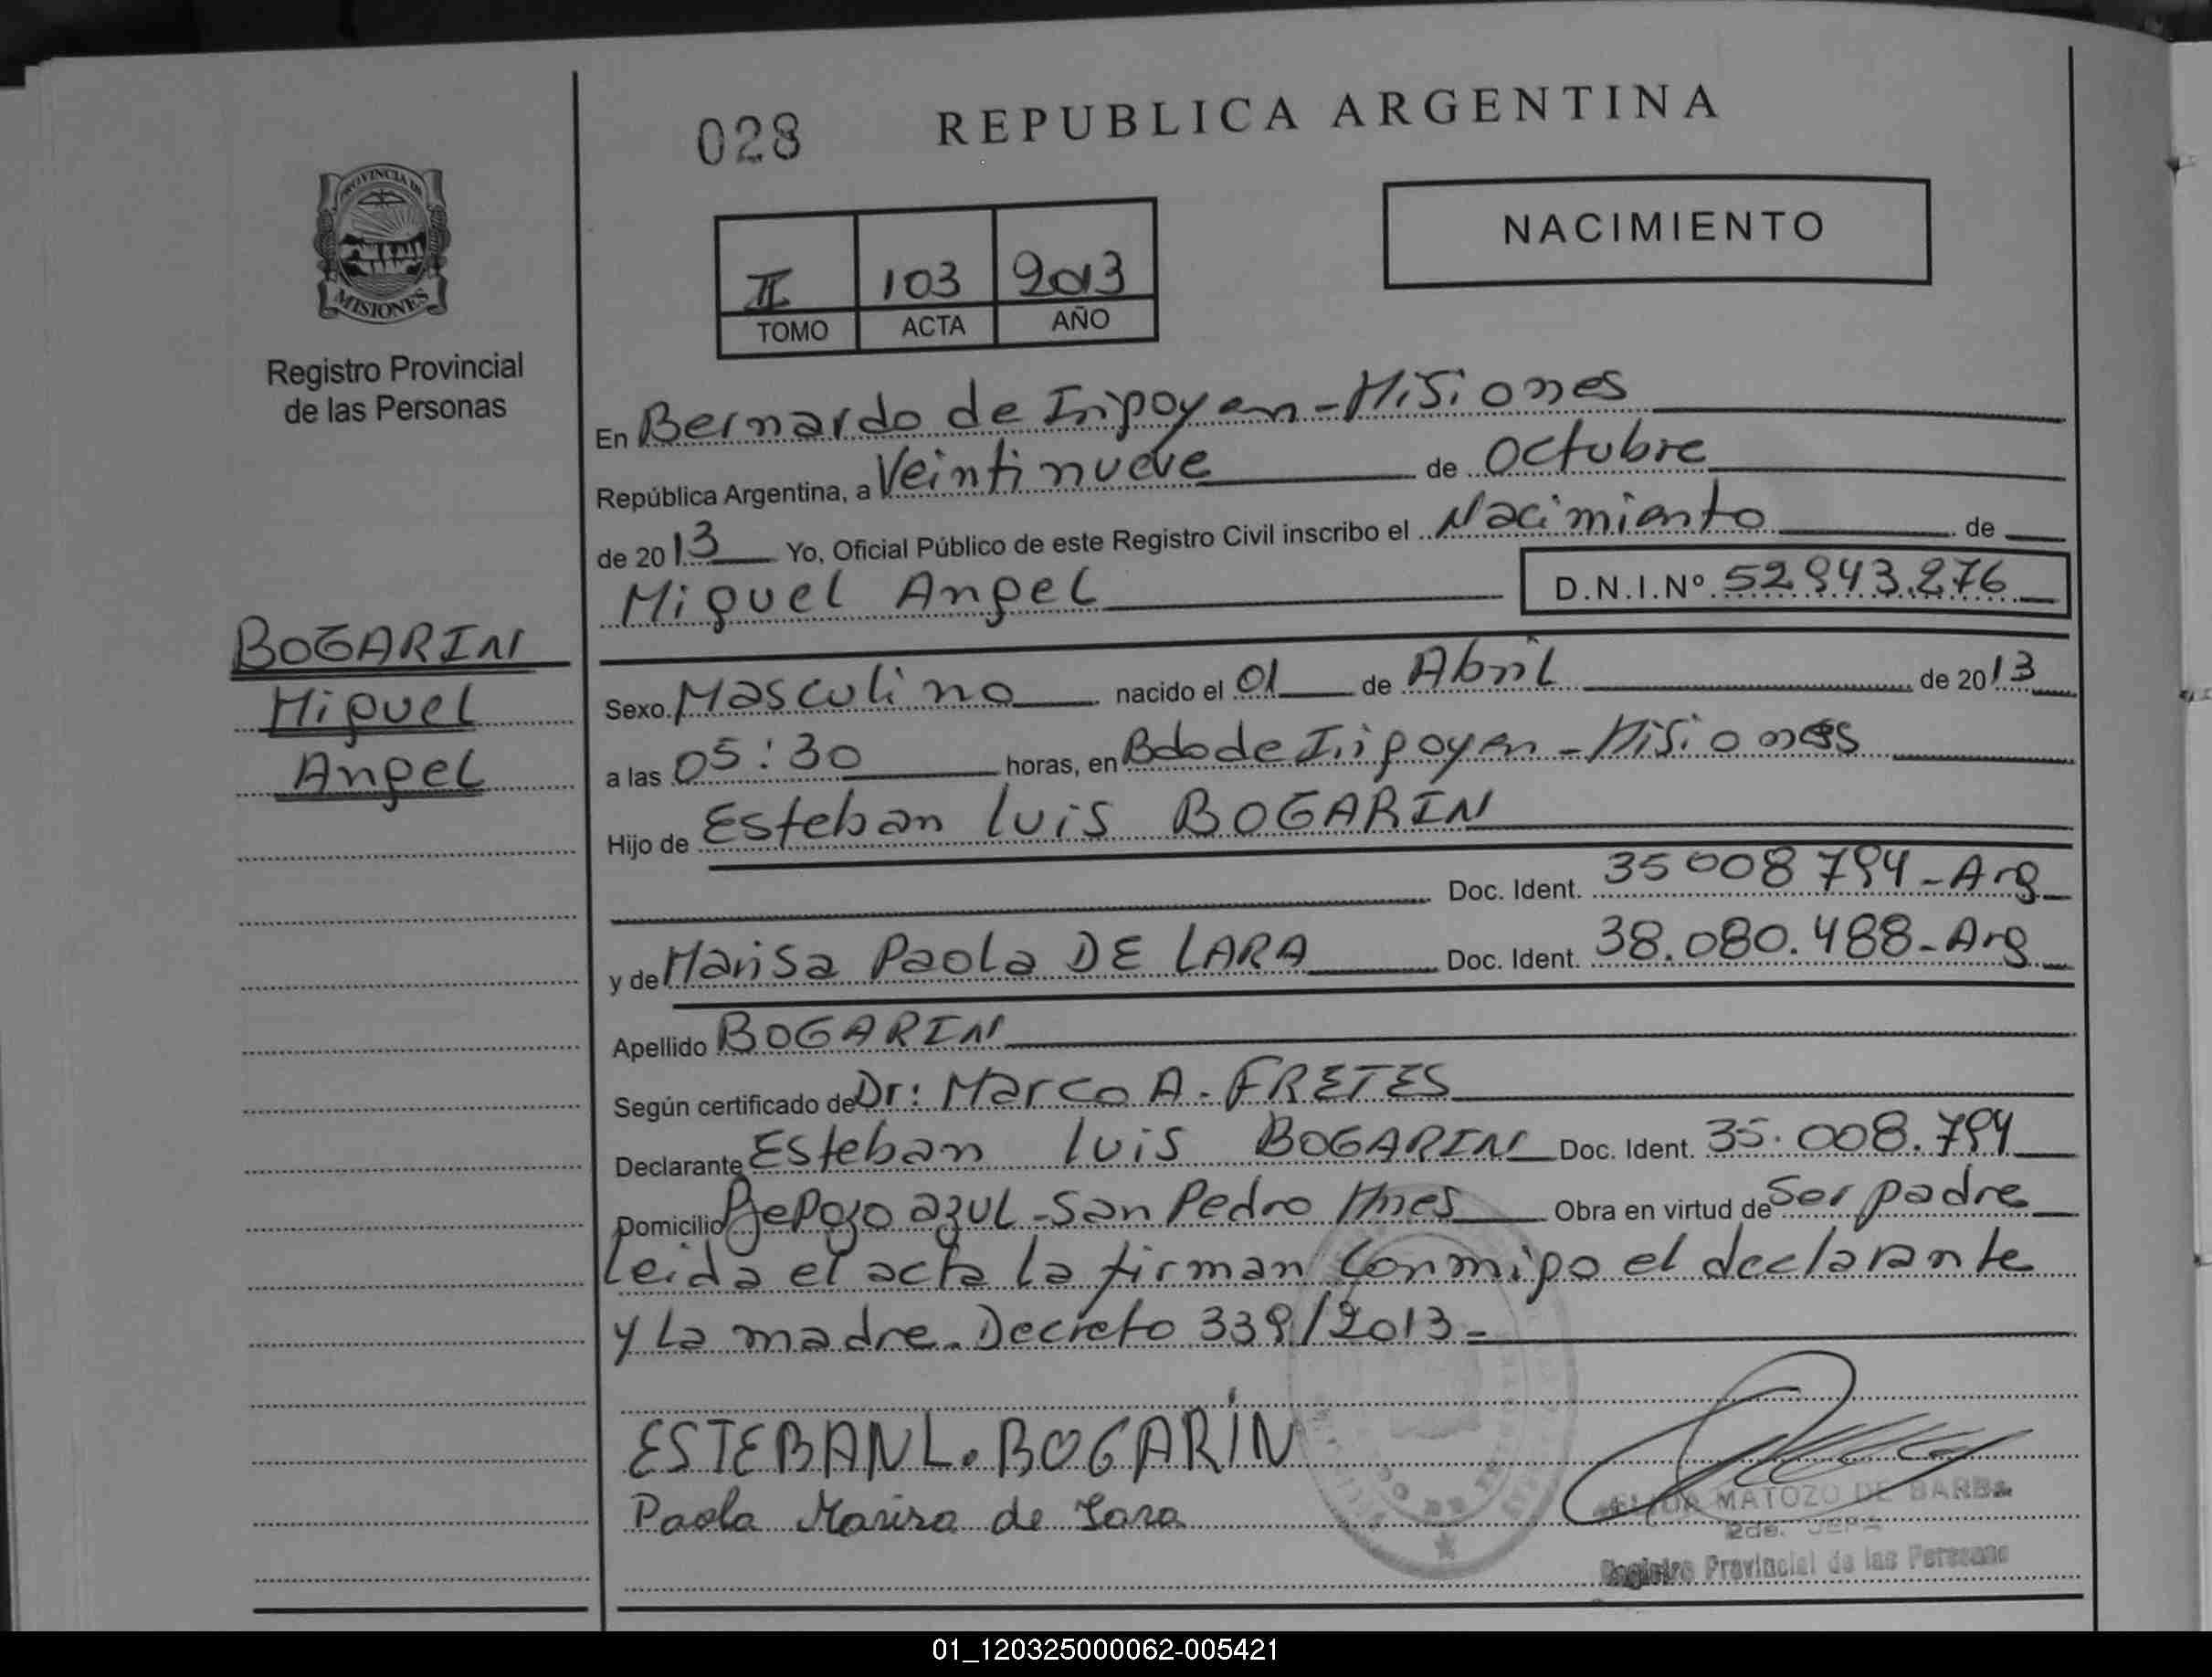 028
REPUBLICA ARGENTINA
PROVINCIA DE
MISIONES
Registro Provincial
de las Personas
NACIMIENTO
II 103 2013
TOMO ACTA AÑO
En Bernardo de Irigoyen - Misiones
República Argentina, a Veintinueve de Octubre
de 2013 Yo, Oficial Público de este Registro Civil inscribo el Nacimiento de
Miguel Angel D.N.I.Nº 52.943.276
BOGARIN
Miguel
Angel
Sexo Masculino nacido el 01 de Abril de 2013
a las 05:30 horas, en Bdo de Irigoyen - Misiones
Hijo de Esteban Luis BOGARIN
Doc. Ident. 35008794 - Arg
y de Marisa Paola DE LARA Doc. Ident. 38.080.488 - Arg
Apellido BOGARIN
Según certificado de Dr: Marco A. FRETES
Declarante Esteban Luis BOGARIN Doc. Ident. 35.008.794
Domicilio Pozo azul - San Pedro Mnes Obra en virtud de Ser padre
Leida el acta la firman conmigo el declarante
y la madre. Decreto 339/2013 =
ESTEBAN L. BOGARÍN
Paola Marisa de Lara
MATOZO DE BARBA
2da. JEFA
Registro Provincial de las Personas
01_120325000062-005421